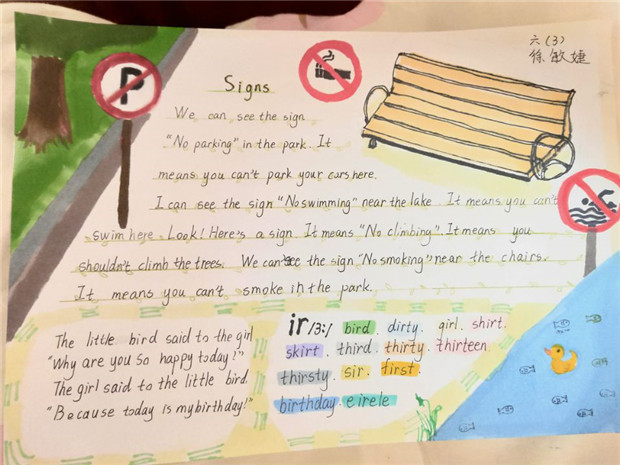 六(3)
徐敏婕
P
Signs
We can see the sign
"No parking" in the park. It
means you can't park your cars here.
I can see the sign "No swimming" near the lake. It means you can't
swim here. Look! Here's a sign. It means "No climbing". It means you
shouldn't climb the trees. We can see the sign "No smoking" near the chairs.
It means you can't smoke in the park.
The little bird said to the girl
"Why are you so happy today?"
The girl said to the little bird.
"Because today is my birthday!"
ir /ɜː/ bird. dirty. girl. shirt.
skirt. third. thirty. thirteen
thirsty. sir. first.
birthday. eirele